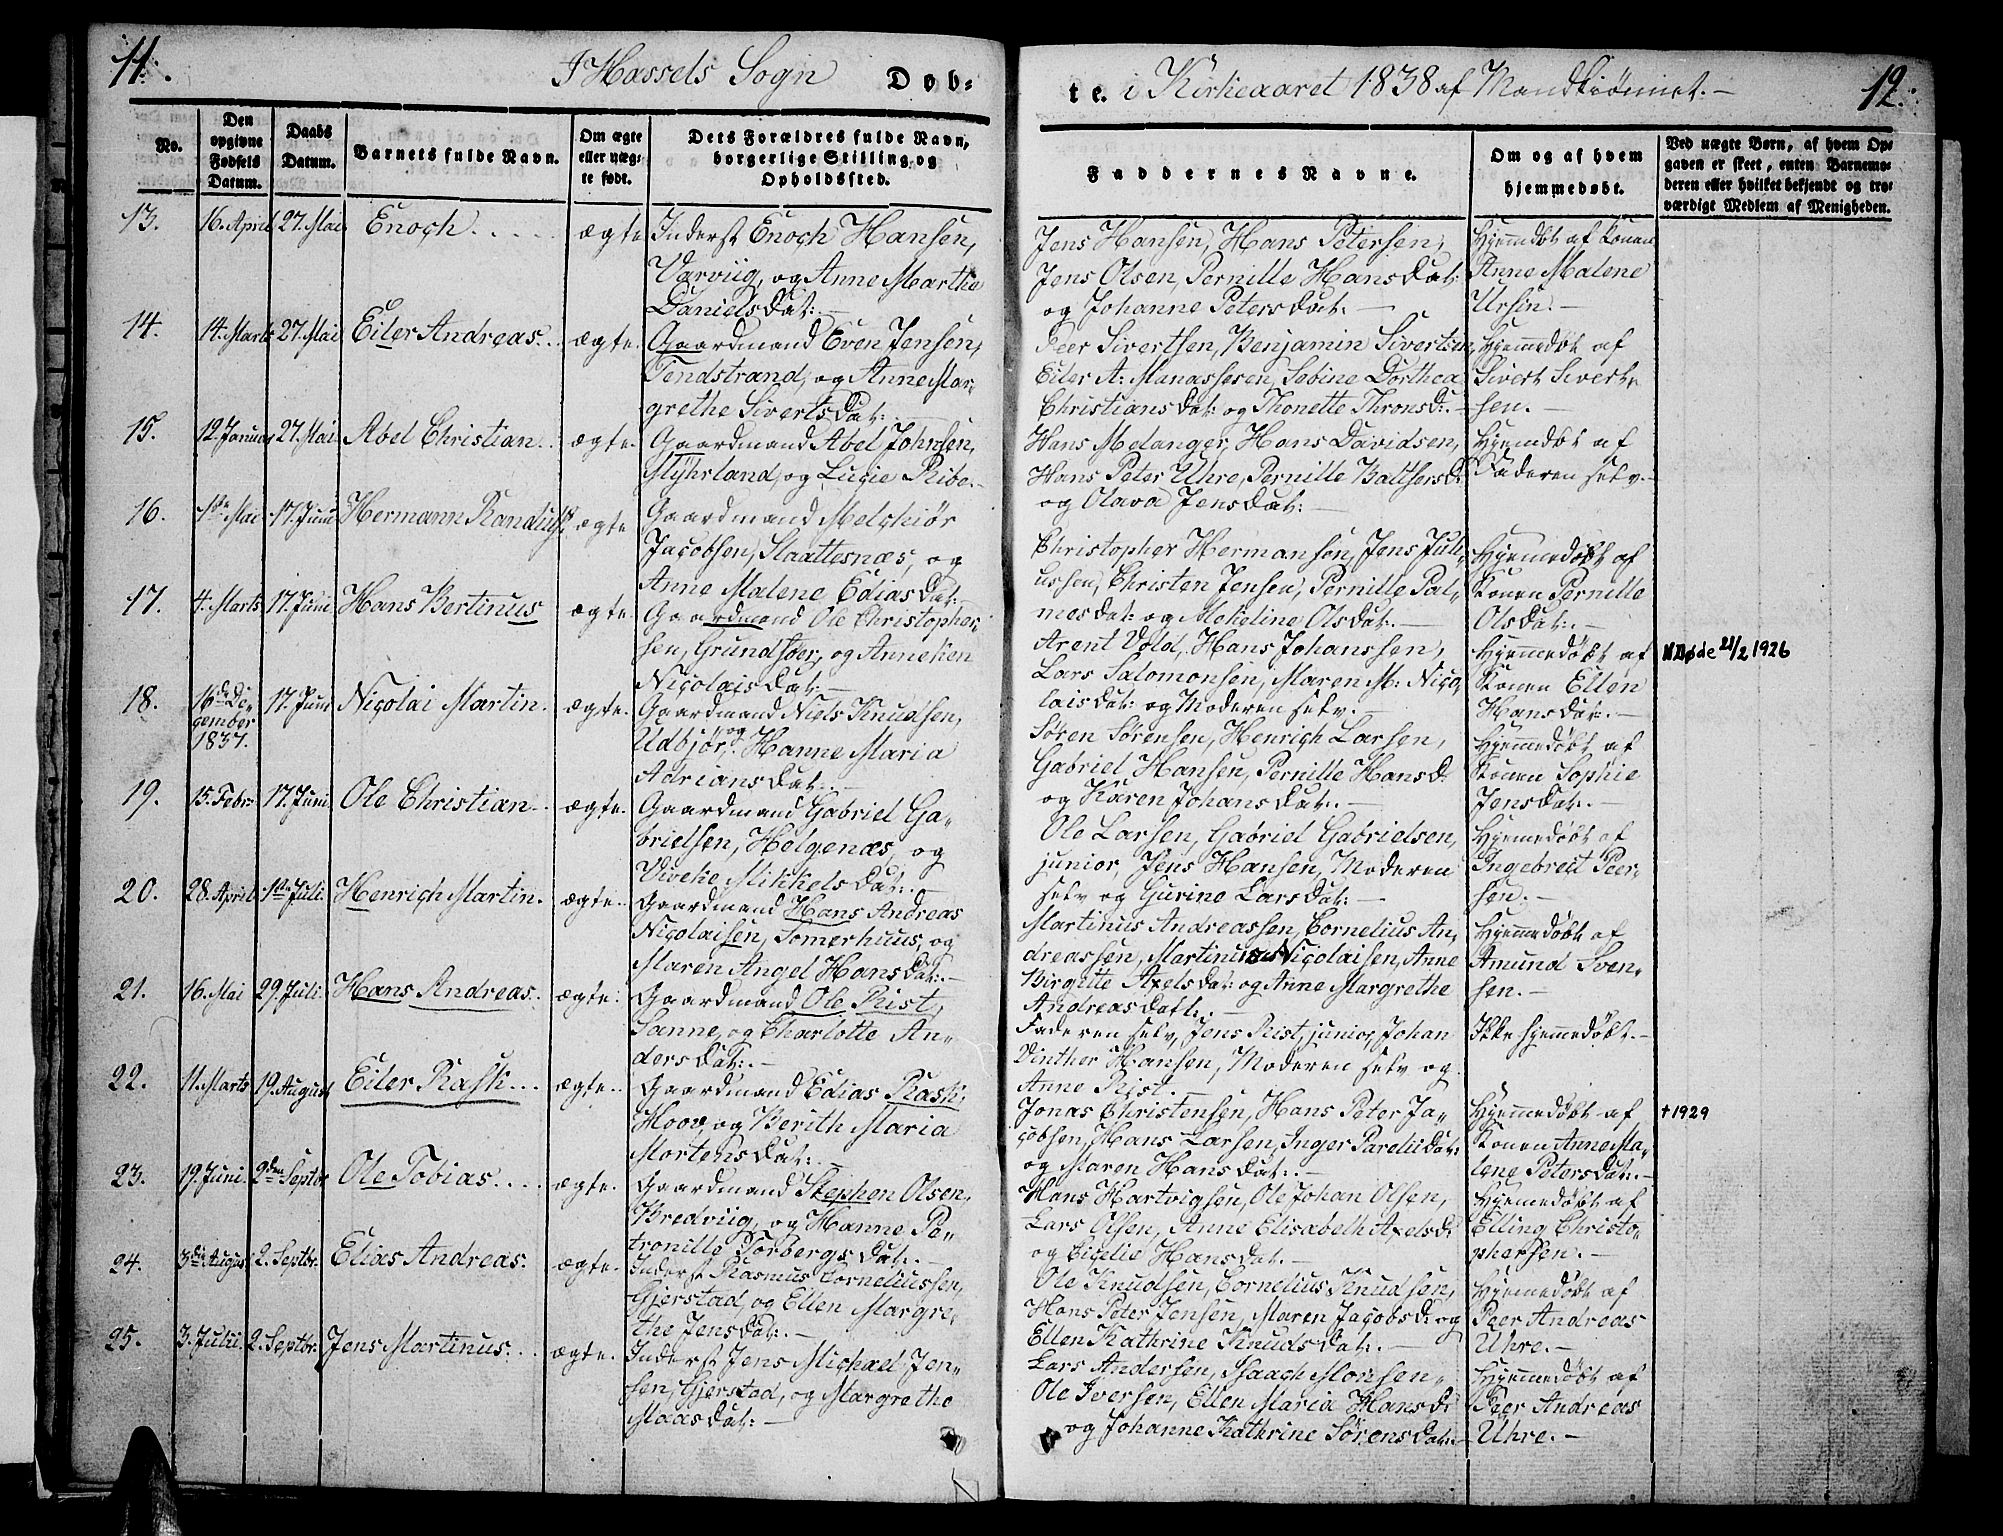 11.
I Hassels Sogn Døb-
No.
Den opgivne Fødsels Datum.
Daabs Datum.
Barnets fulde Navn.
Om ægte eller uæg-te født.
Dets Forældres fulde Navn, borgerlige Stilling og Opholdssted.
13. 16. April 27. Mai Enoch ægte Inderst Enoch Hansen,
Varviig, og Anne Marthe
Daniels Dat:
14. 14. Marts 27. Mai Eiler Andreas. ægte. Gaardmand Even Jensen,
Tendstrand, og Anne Mar-
grethe Siverts Dat:
15. 12. Januar 27. Mai Abel Christian. ægte. Gaardmand Abel Johnsen,
og Lucie Ribe.
16. 1ste Mai 17. Juni Hermann ægte Gaardmand Melchiør
Jacobsen, Slaattesnæs, og
Anne Malene Edias Dat:
17. 4. Marts 17. Juni Hans Bertinus ægte. Gaardmand Ole Christopher-
sen, og Anneken
Nicolais Dat:
18. 16de De-
cember
1837. 17. Juni Nicolai Martin. ægte. Gaardmand Niels Knudsen,
og Hanne Maria
Adrians Dat:
19. 15. Febr: 17. Juni Ole Christian. ægte. Gaardmand Gabriel Ga-
brielsen, Holgenæs, og
Viveke Mikkels Dat:
20. 28. April 1ste Juli. Henrich Martin. ægte. Gaardmand Hans Andreas
Nicolaisen, Somerhuus, og
Maren Angel Hans Dat:
21. 16. Mai 29. Juli. Hans Andreas. ægte. Gaardmand Ole Rist,
Sanne, og Charlotte An-
ders Dat:
22. 11. Marts 19. August Eiler Rask ægte. Gaardmand Edias Rask,
Hoov, og Berith Maria
Mortens Dat:
23. 19. Juni. 2den Septbr Ole Tobias. ægte. Gaardmand Stephen Olsen,
Bredviig, og Hanne Pe-
tronille Torbergs Dat:
24. 3die August 2. Septbr. Elias Andreas. ægte. Inderst Rasmus Corneliussen,
Gjerstad, og Ellen Margre-
the Jens Dat:
25. 3. Juli. 2. Septbr. Jens Martinus. ægte. Inderst Jens Michael Jen-
sen, Gjerstad, og Margrethe
Maas Dat:
te. i Kirkeaaret 1838 af Mandkiønnet.
12.
Faddernes Navne.
Om og af hvem hjemmedøbt.
Ved uægte Børn, af hvem Op-
gaven er skeet, enten Barnemo-
deren eller hvilket bekjendt og tro-
værdigt Medlem af Menigheden.
Jens Hansen, Hans Petersen, Hjemdøbt af Konen
Jens Olsen, Pernille Hans Dat: Anne Malene
og Johanne Peters Dat: Ursin.
Peer Sivertsen, Benjamin Sivertsen, Hjemmedøbt af
Eiler A: Manassesen, Sebine Dorthea Sivert Sivert-
Christians Dat: og Thonette Throns D: sen.
Hans Melanger, Hans Davidsen, Hjemdøbt af
Hans Peter Uhre, Pernille Baltsers D: Faderen selv.
og Olava Jens Dat:
Christopher Hermansen, Jens Juli- Hjemmedøbt af
ussen, Christen Jensen, Pernille Pal- Konen Pernille
mes Dat: og Mekeline Ols Dat: Ols Dat:
Arent Vold, Hans Johanssen, Hjemmedøbt af
Lars Salomonsen, Maren M: Nico- Konen Ellen
lais Dat: og Moderen selv. Hans Dat:
21/2 1926
Søren Sørensen, Henrich Larsen, Hjemmedøbt af
Gabriel Hansen, Pernille Hans D: Konen Sophie
og Karen Johans Dat: Jens Dat:
Ole Larsen, Gabriel Gabrielsen, Hjemmedøbt af
junior, Jens Hansen, Moderen Ingebreit Peer-
selv og Gurine Lars Dat: sen.
Martinus Andreassen, Cornelius An- Hjemmedøbt af
dreassen, Martinus Nicolaisen, Anne Amund Sven-
Birgitte Axels Dat: og Anne Margrethe sen.
Andreas Datt:
Faderen selv, Jens Rist, junior, Johan Ikke hjemmedøbt.
Vinther Hansen, Moderen selv og
Anne Rist.
Jonas Christensen, Hans Peter Ja- Hjemmedøbt af
cobsen, Hans Larsen, Inger Parelii Dat: Konen Anne Ma-
og Maren Hans Dat: lene Peters Dat:
† 1929
Hans Hartvigsen, Ole Johan Olsen, Hjemmedøbt af
Lars Olsen, Anne Elisabeth Axels D: Elling Christo-
og Cicelie Hans Dat. phersen.
Ole Knudsen, Cornelius Knudsen, Hjemmedøbt af
Hans Peter Jensen, Maren Jacobs D: og Peer Andreas
Ellen Kathrine Knuds Dat: Uhre.
Lars Andersen, Isaach Monsen Hjemmedøbt af
Ole Iversen, Ellen Maria Hans D: Peer Andreas
og Johanne Kathrine Sørens Dat: Uhre.